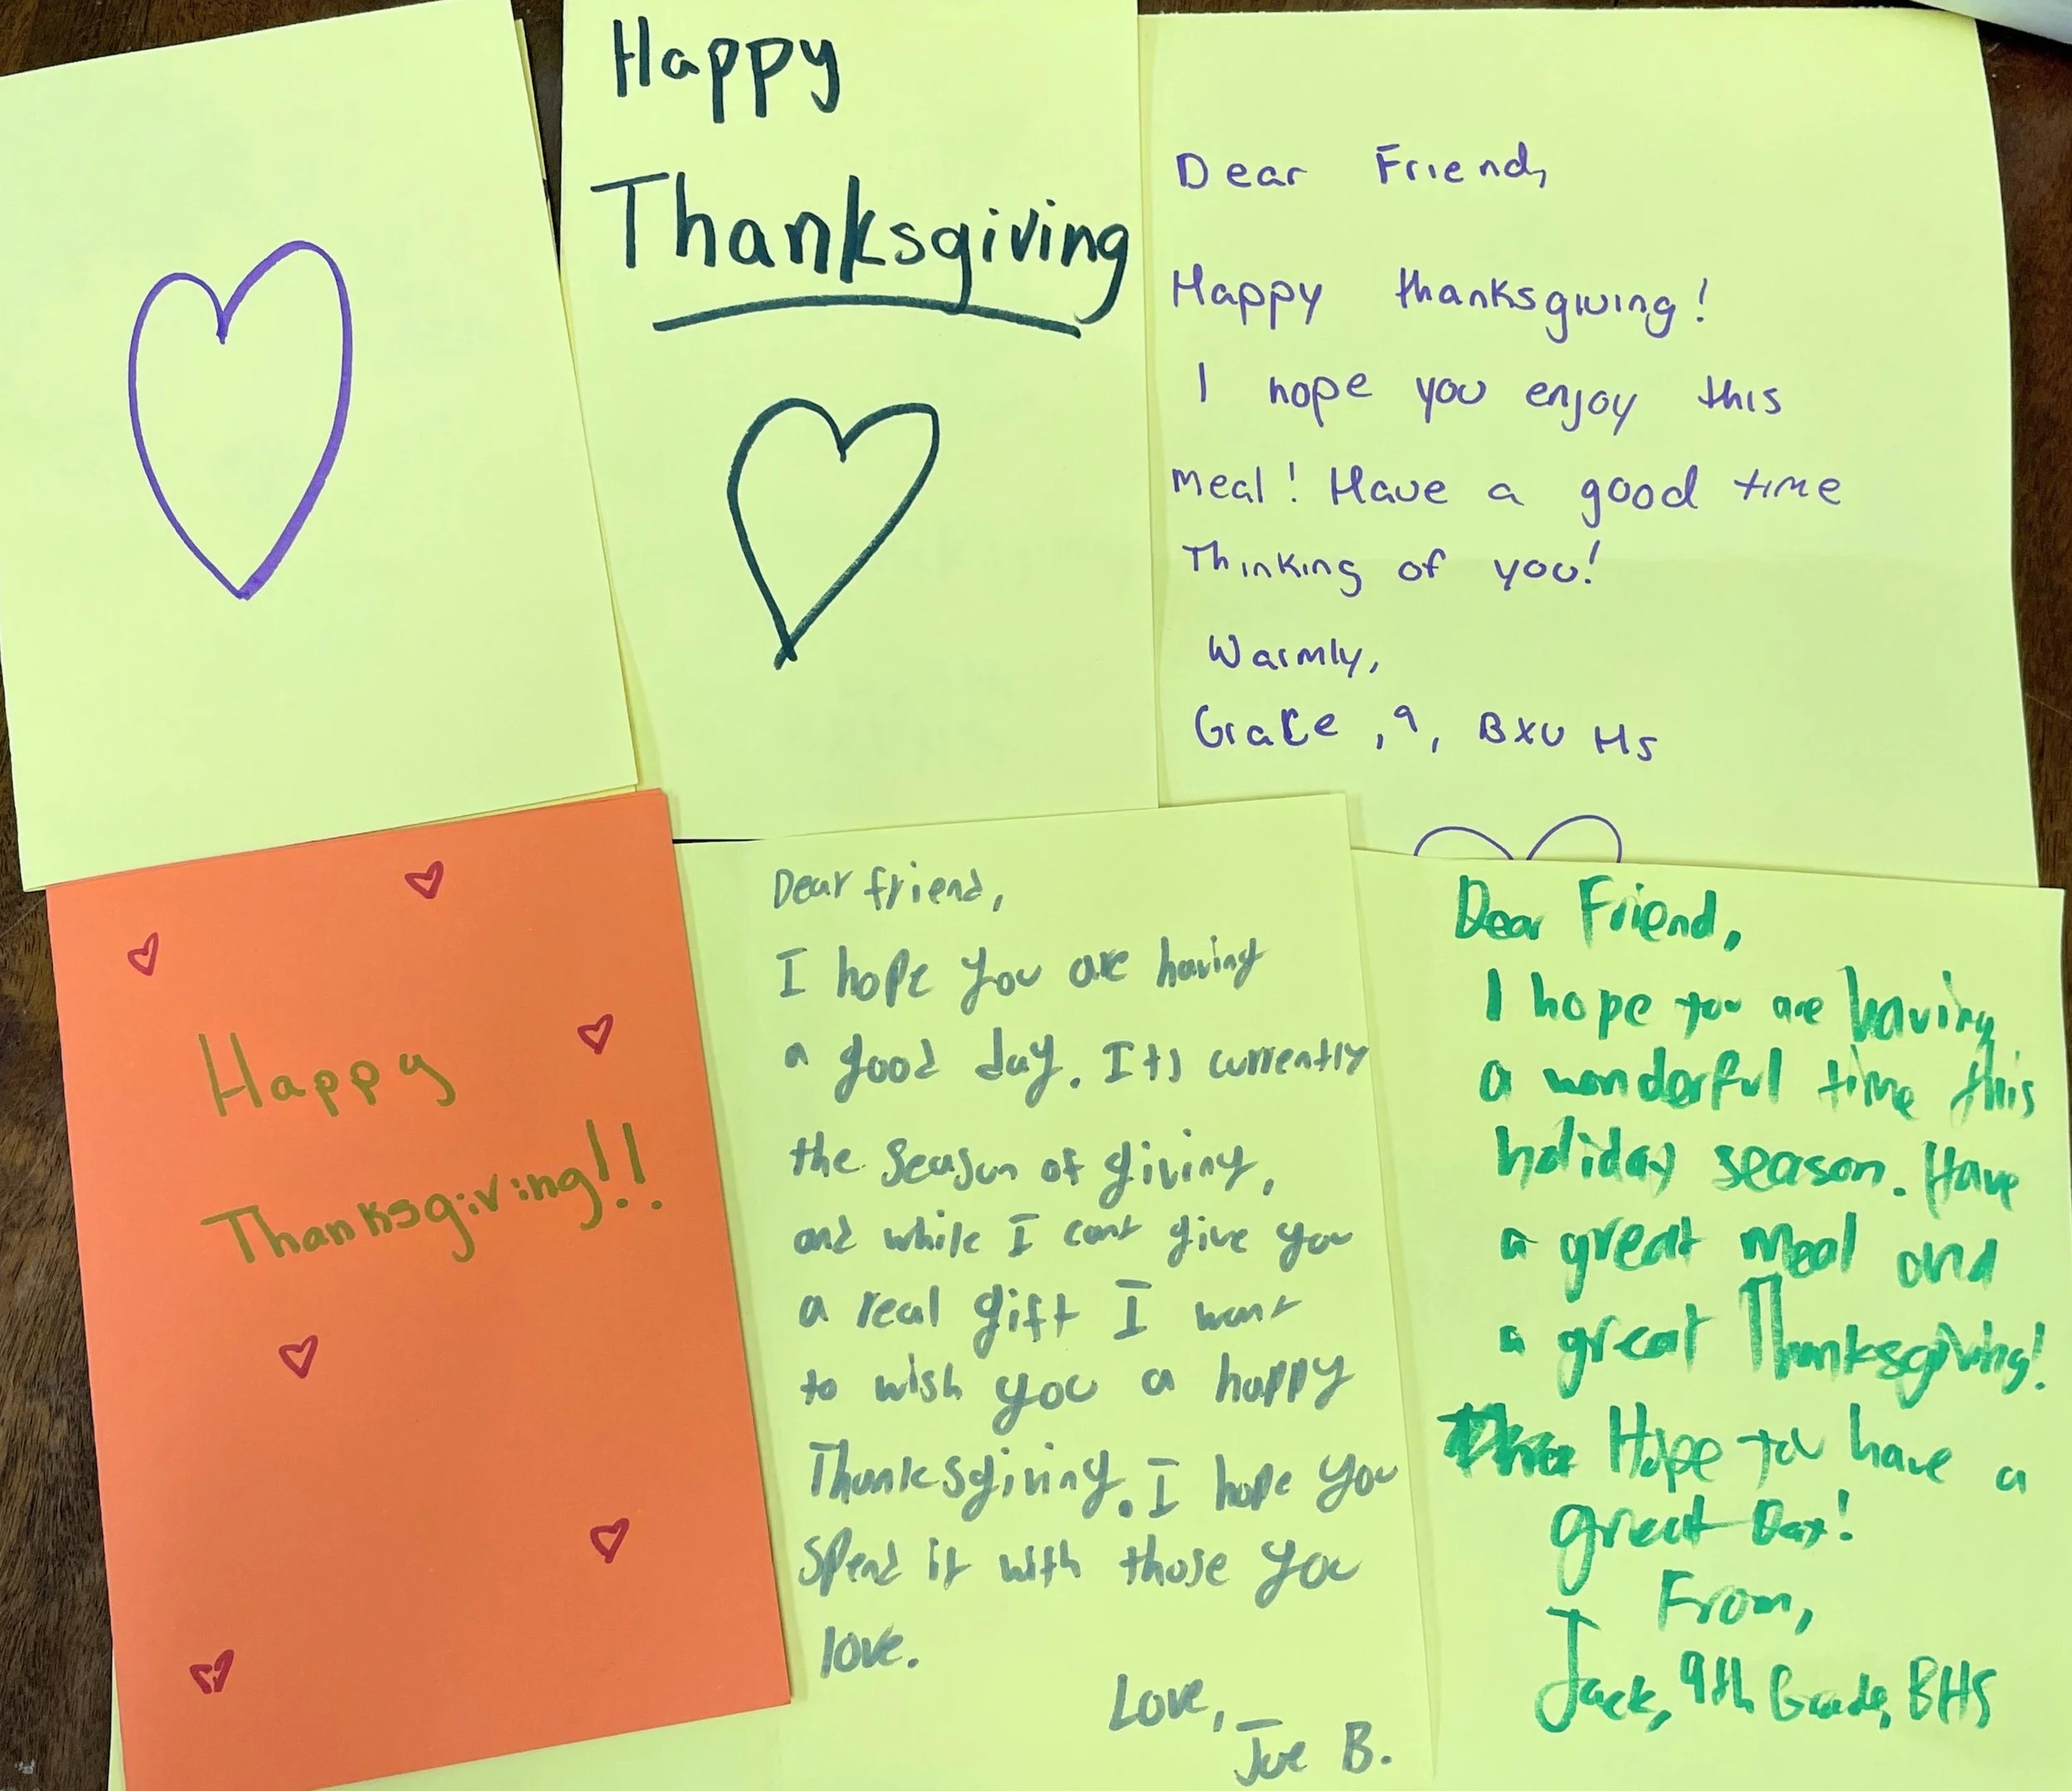 Happy
Thanksgiving
Dear Friend,
Happy thanksgiving!
I hope you enjoy this
meal! Have a good time
Thinking of you!
Warmly,
Grace, 9, BXU HS
Happy
Thanksgiving!!
Dear friend,
I hope you are having
a good day. Its currently
the season of giving,
and while I cant give you
a real gift I want
to wish you a happy
Thanksgiving. I hope you
spend it with those you
love.
Love,
Joe B.
Dear Friend,
I hope you are having
a wonderful time this
holiday season. Have
a great meal and
a great Thanksgiving!
Hope you have a
great Day!
From,
Jack, 9th Grade, BHS